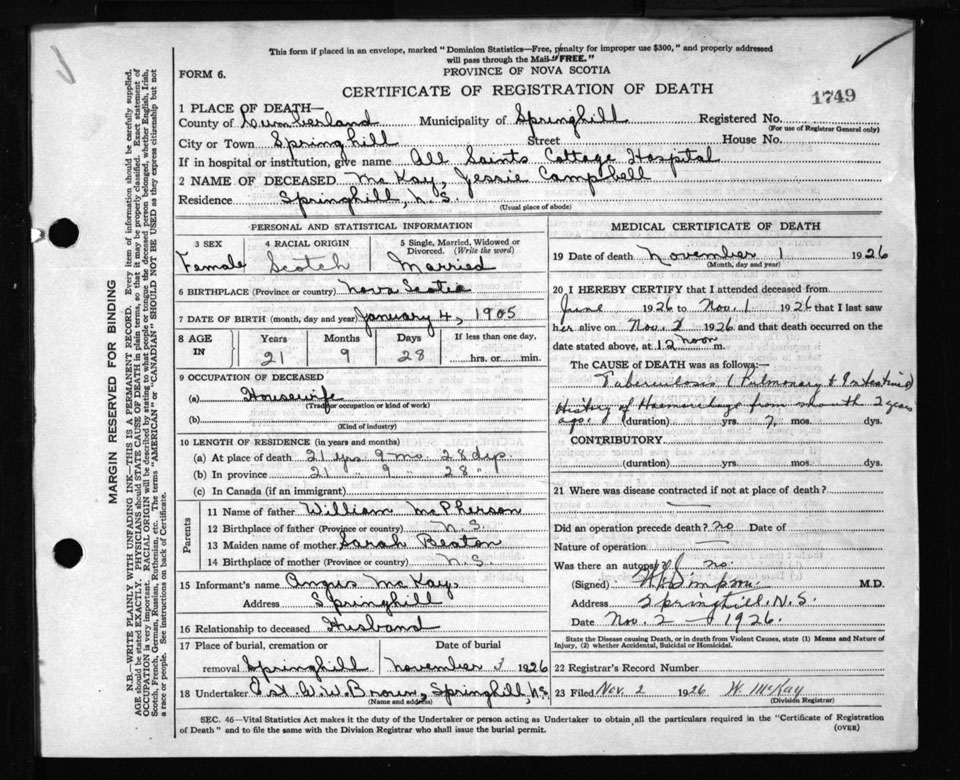 This form if placed in an envelope, marked "Dominion Statistics—Free, penalty for improper use $300," and properly addressed
will pass through the Mail "FREE."
FORM 6.
PROVINCE OF NOVA SCOTIA
CERTIFICATE OF REGISTRATION OF DEATH
1749
1 PLACE OF DEATH—
County of Cumberland Municipality of Springhill Registered No.
(For use of Registrar General only)
City or Town Springhill Street House No.
If in hospital or institution, give name All Saints Cottage Hospital
2 NAME OF DECEASED McKay, Jessie Campbell
Residence Springhill, N.S.
(Usual place of abode)
PERSONAL AND STATISTICAL INFORMATION
3 SEX 4 RACIAL ORIGIN 5 Single, Married, Widowed or
Divorced. (Write the word)
Female Scotch Married
6 BIRTHPLACE (Province or country) Nova Scotia
7 DATE OF BIRTH (month, day and year) January 4, 1905
8 AGE IN Years Months Days If less than one day,
21 9 28 hrs. or min.
9 OCCUPATION OF DECEASED
(a) Housewife
(Trade or occupation or kind of work)
(b)
(Kind of industry)
10 LENGTH OF RESIDENCE (in years and months)
(a) At place of death 21 yrs. 9 mo. 28 dys.
(b) In province 21 " 9 " 28 "
(c) In Canada (if an immigrant)
Parents
11 Name of father William McPherson
12 Birthplace of father (Province or country) N.S.
13 Maiden name of mother Sarah Beaton
14 Birthplace of mother (Province or country) N.S.
15 Informant's name Angus McKay,
Address Springhill
16 Relationship to deceased Husband
17 Place of burial, cremation or Date of burial
removal Springhill November 3 1926
18 Undertaker Est. W.W. Brown, Springhill, N.S.
(Name and address)
MEDICAL CERTIFICATE OF DEATH
19 Date of death November 1 1926
(Month, day and year)
20 I HEREBY CERTIFY that I attended deceased from
June 1926 to Nov. 1 1926 that I last saw
her alive on Nov. 1926 and that death occurred on the
date stated above, at 12 noon m.
The CAUSE OF DEATH was as follows:—
Tuberculosis (Pulmonary & Intestinal)
History of Haemorrhage from mouth 2 years
ago. (duration) yrs. mos. dys.
CONTRIBUTORY
(duration) yrs. mos. dys.
21 Where was disease contracted if not at place of death?
Did an operation precede death? no Date of
Nature of operation —
Was there an autopsy? no.
(Signed) Simpson M.D.
Address Springhill. N.S.
Date Nov. 2 — 1926.
State the Disease causing Death, or in death from Violent Causes, state (1) Means and Nature of
Injury, (2) whether Accidental, Suicidal or Homicidal.
22 Registrar's Record Number
23 Filed Nov. 2 1926 W. McKay
(Division Registrar)
SEC. 46—Vital Statistics Act makes it the duty of the Undertaker or person acting as Undertaker to obtain all the particulars required in the "Certificate of Registration
of Death" and to file the same with the Division Registrar who shall issue the burial permit.
(OVER)
MARGIN RESERVED FOR BINDING
N.B.—WRITE PLAINLY WITH UNFADING INK—THIS IS A PERMANENT RECORD. Every item of information should be carefully supplied.
AGE should be stated EXACTLY. PHYSICIANS should STATE CAUSE OF DEATH in plain terms, so that it may be properly classified. Exact statement of
OCCUPATION is very important. RACIAL ORIGIN will be described by stating to what people or tongue the deceased person belonged, whether English, Irish,
Scotch, French, German, Russian, Ruthenian, etc. The terms "AMERICAN" or "CANADIAN" SHOULD NOT BE USED as they express citizenship but not
a race or people. See instructions on back of Certificate.